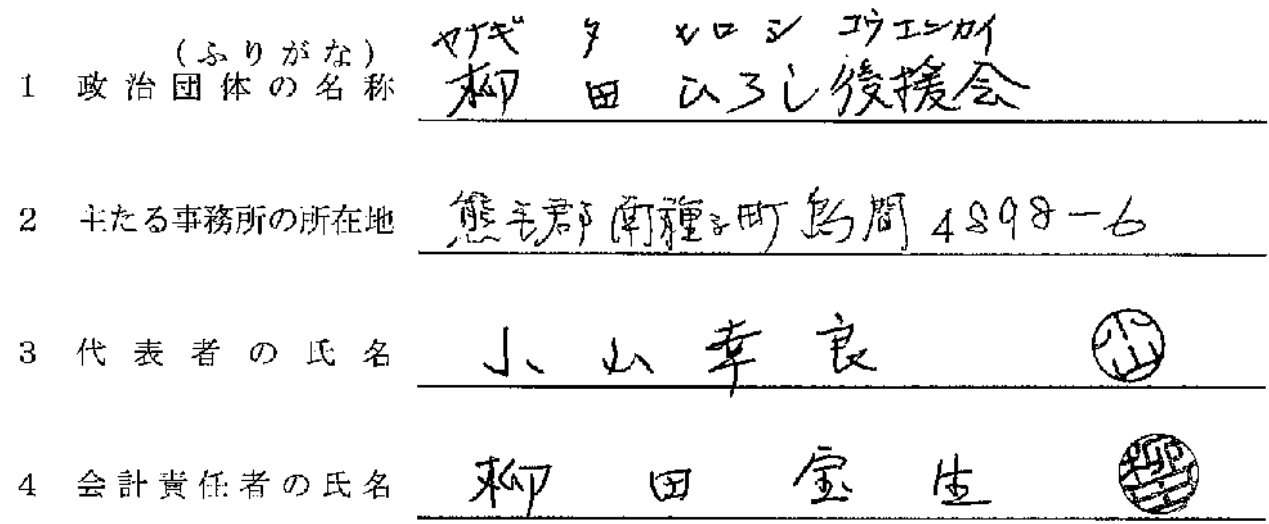 ヤナギタ ヒロシ コウエンカイ
(ふりがな)
1 政治団体の名称 柳田ひろし後援会
2 主たる事務所の所在地 熊毛郡南種子町島間4898-6
3 代表者の氏名 小山幸良 小山
4 会計責任者の氏名 柳田宝生 柳田